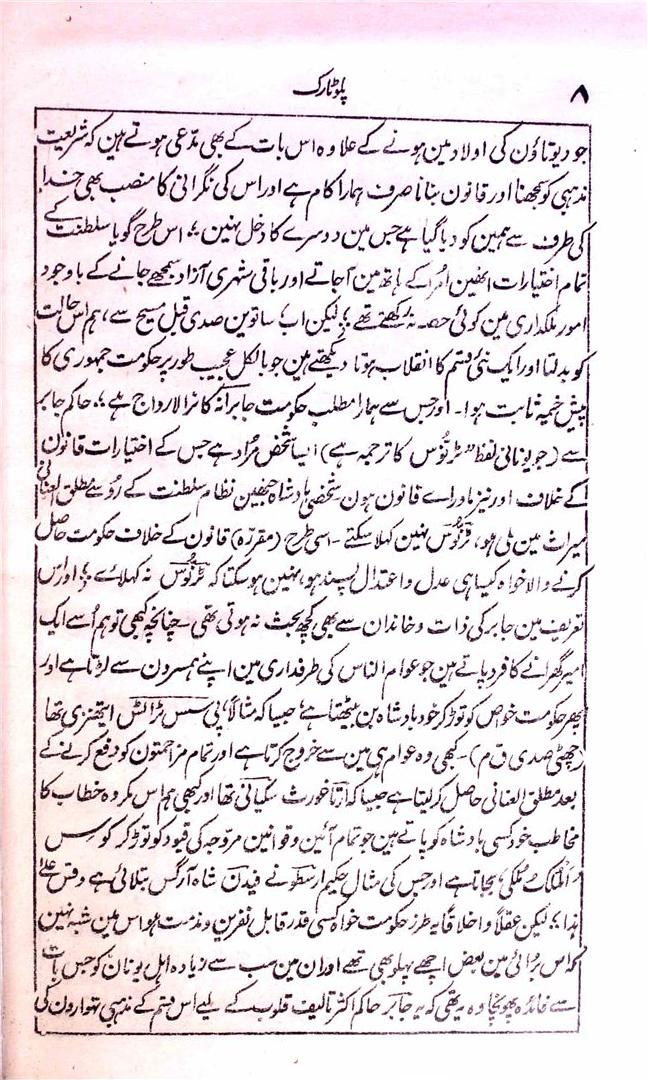 ۸
پلوٹارک
جو دیوتاؤن کی اولاد مین ہونے کے علاوہ اس بات کے بھی مدّعی ہوتے ہین کہ شریعت
مذہبی کو سمجھنا اور قانون بنانا صرف ہمارا کام ہے اور اس کی نگرانی کا منصب بھی خدا
کی طرف سے ہمین کو دیا گیا ہے جس مین دوسرے کا دخل نہین ؛ اس طرح گویا سلطنت کے
تمام اختیارات انھین اُمرا کے ہاتھ مین آجاتے اور باقی شہری آزاد سمجھے جانے کے باوجود
امور ملکداری مین کوئی حصہ نہ رکھتے تھے ؛ لیکن اب ساتوین صدی قبل مسیح سے، ہم اس حالت
کو بدلتا اور ایک نئی قسم کا انقلاب ہوتا دیکھتے ہین جو بالکل عجیب طور پر حکومت جمہوری کا
پیش خیمہ ثابت ہوا۔ اور جس سے ہمارا مطلب حکومت جابرانہ کا نرالا رواج ہے ؛ حاکم جابر
سے (جو یونانی لفظ "ٹرنُوس کا ترجمہ ہے) ایسا شخص مُراد ہے جس کے اختیارات قانون
کے خلاف اور نیز ماوراے قانون ہون شخصی بادشاہ جنھین نظام سلطنت کے رُو سے مطلق العنانی
میراث مین ملی ہو، ٹرنُوس نہین کہلا سکتے۔ اسی طرح (مقررہ) قانون کے خلاف حکومت حاصل
کرنے والا خواہ کیسا ہی عدل و اعتدال پسند ہو، نہین ہو سکتا کہ ٹرنُوس نہ کہلائے ؛ اور اس
تعریف مین جابر کی ذات و خاندان سے بھی کچھ بحث نہ ہوتی تھی۔ چنانچہ کبھی تو ہم اُسے ایک
امیر گھرانے کا فرد پاتے ہین جو عوام الناس کی طرفداری مین اپنے ہمسرون سے لڑتا ہے اور
پھر حکومت خواص کو توڑ کر خود بادشاہ بن بیٹھتا ہے، جیسا کہ مثلاً، پی سس ٹراٹس ایتھنزی تھا
(چھٹی صدی ق م)۔ کبھی وہ عوام ہی مین سے خروج کرتا ہے اور تمام مزاحمتون کو دفع کرنے کے
بعد مطلق العنانی حاصل کر لیتا ہے جیسا کہ ارتاغورث سکیانی تھا اور کبھی ہم اس مکروہ خطاب کا
مخاطب خود کسی بادشاہ کو پاتے ہین جو تمام آئین و قوانین مروّجہ کی قیود کو توڑ کر کوس
اَلملکُ مُلکی، بجاتا ہے اور جس کی مثال حکیم ارسطو نے فیدن شاہ آرگس بتلائی ہے وقس علیٰ
ہذا ؛ لیکن عقلاً و اخلاقاً یہ طرز حکومت خواہ کسی قدر قابل نفرین و مذمت ہو اس مین شبہ نہین
کہ اس برائی مین بعض اچھے پہلو بھی تھے اور ان مین سب سے زیادہ اہل یونان کو جس بات
سے فائدہ پہونچا وہ یہ تھی کہ یہ جابر حاکم اکثر تالیف قلوب کے لیے اس قسم کے مذہبی تہوارون کی